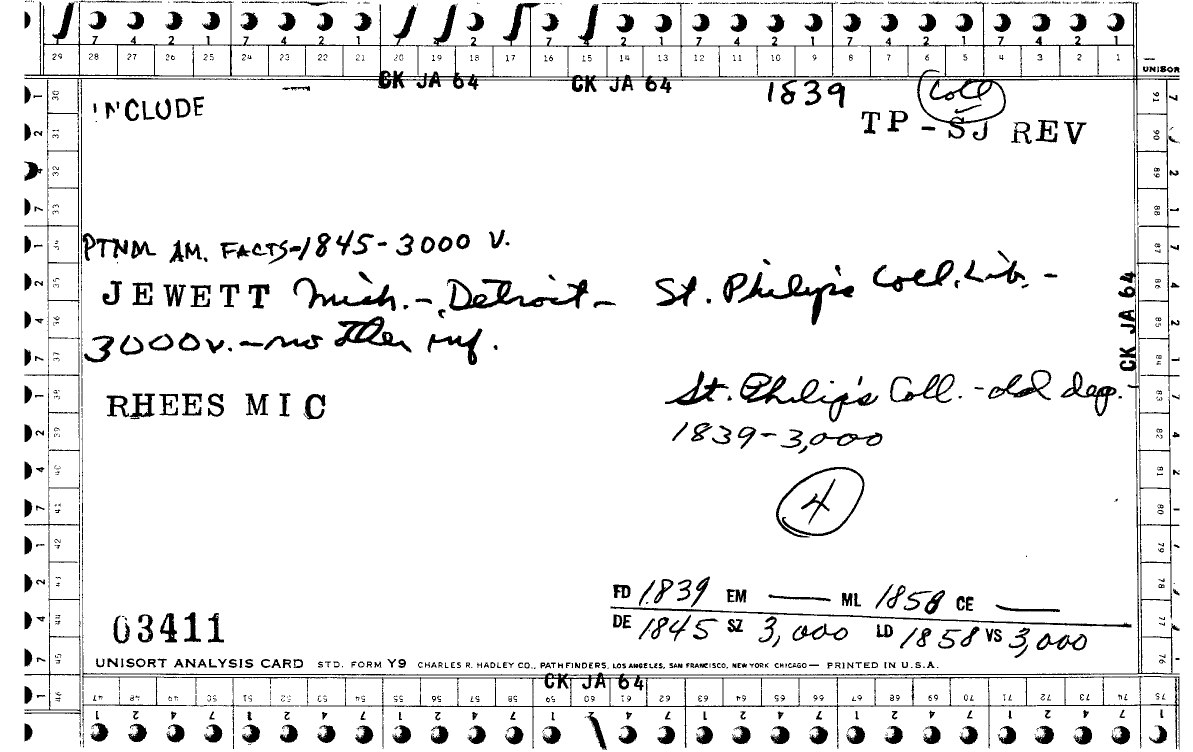 7 4 2 1 7 4 2 1 7 4 2 1 7 4 2 1 7 4 2 1 7 4 2 1 7 4 2 1
29 28 27 26 25 24 23 22 21 20 19 18 17 16 15 14 13 12 11 10 9 8 7 6 5 4 3 2 1
UNISOR
CK JA 64 CK JA 64 1839 Coll
INCLUDE
TP-SJ REV
PTNM AM. FACTS-1845-3000 V.
JEWETT Mich. - Detroit - St. Philip's Coll. Lib. -
3000v. - no other inf.
CK JA 64
RHEES MIC
St. Philip's Coll. - old dep.
1839-3,000
4
FD 1839 EM — ML 1858 CE —
DE 1845 SZ 3,000 LD 1858 VS 3,000
03411
UNISORT ANALYSIS CARD STD. FORM Y9 CHARLES R. HADLEY CO., PATHFINDERS, LOS ANGELES, SAN FRANCISCO, NEW YORK CHICAGO — PRINTED IN U.S.A.
CK JA 64
30 31 32 33 34 35 36 37 38 39 40 41 42 43 44 45 46
47 48 49 50 51 52 53 54 55 56 57 58 59 60 61 62 63 64 65 66 67 68 69 70 71 72 73 74 75
91 90 89 88 87 86 85 84 83 82 81 80 79 78 77 76